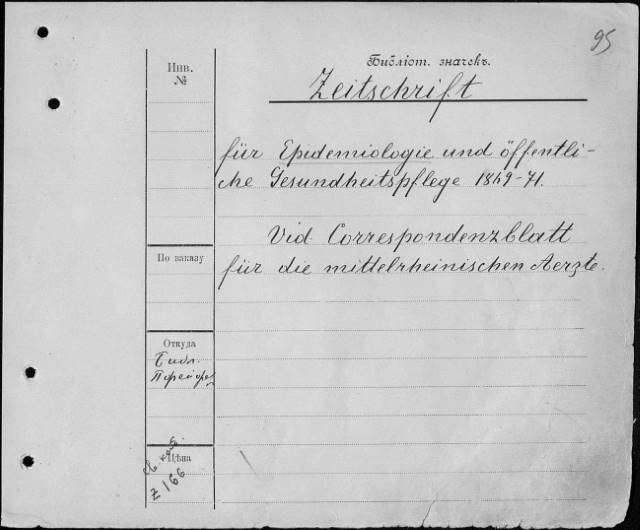 95
Библіот. значекъ.
Инв.
№
Zeitschrift
für Epidemiologie und öffentli-
che Gesundheitspflege 1869-71.
Vid. Correspondenzblatt
für die mittelrheinischen Aerzte.
По заказу
Откуда
Библ.
Цѣна
Z 166